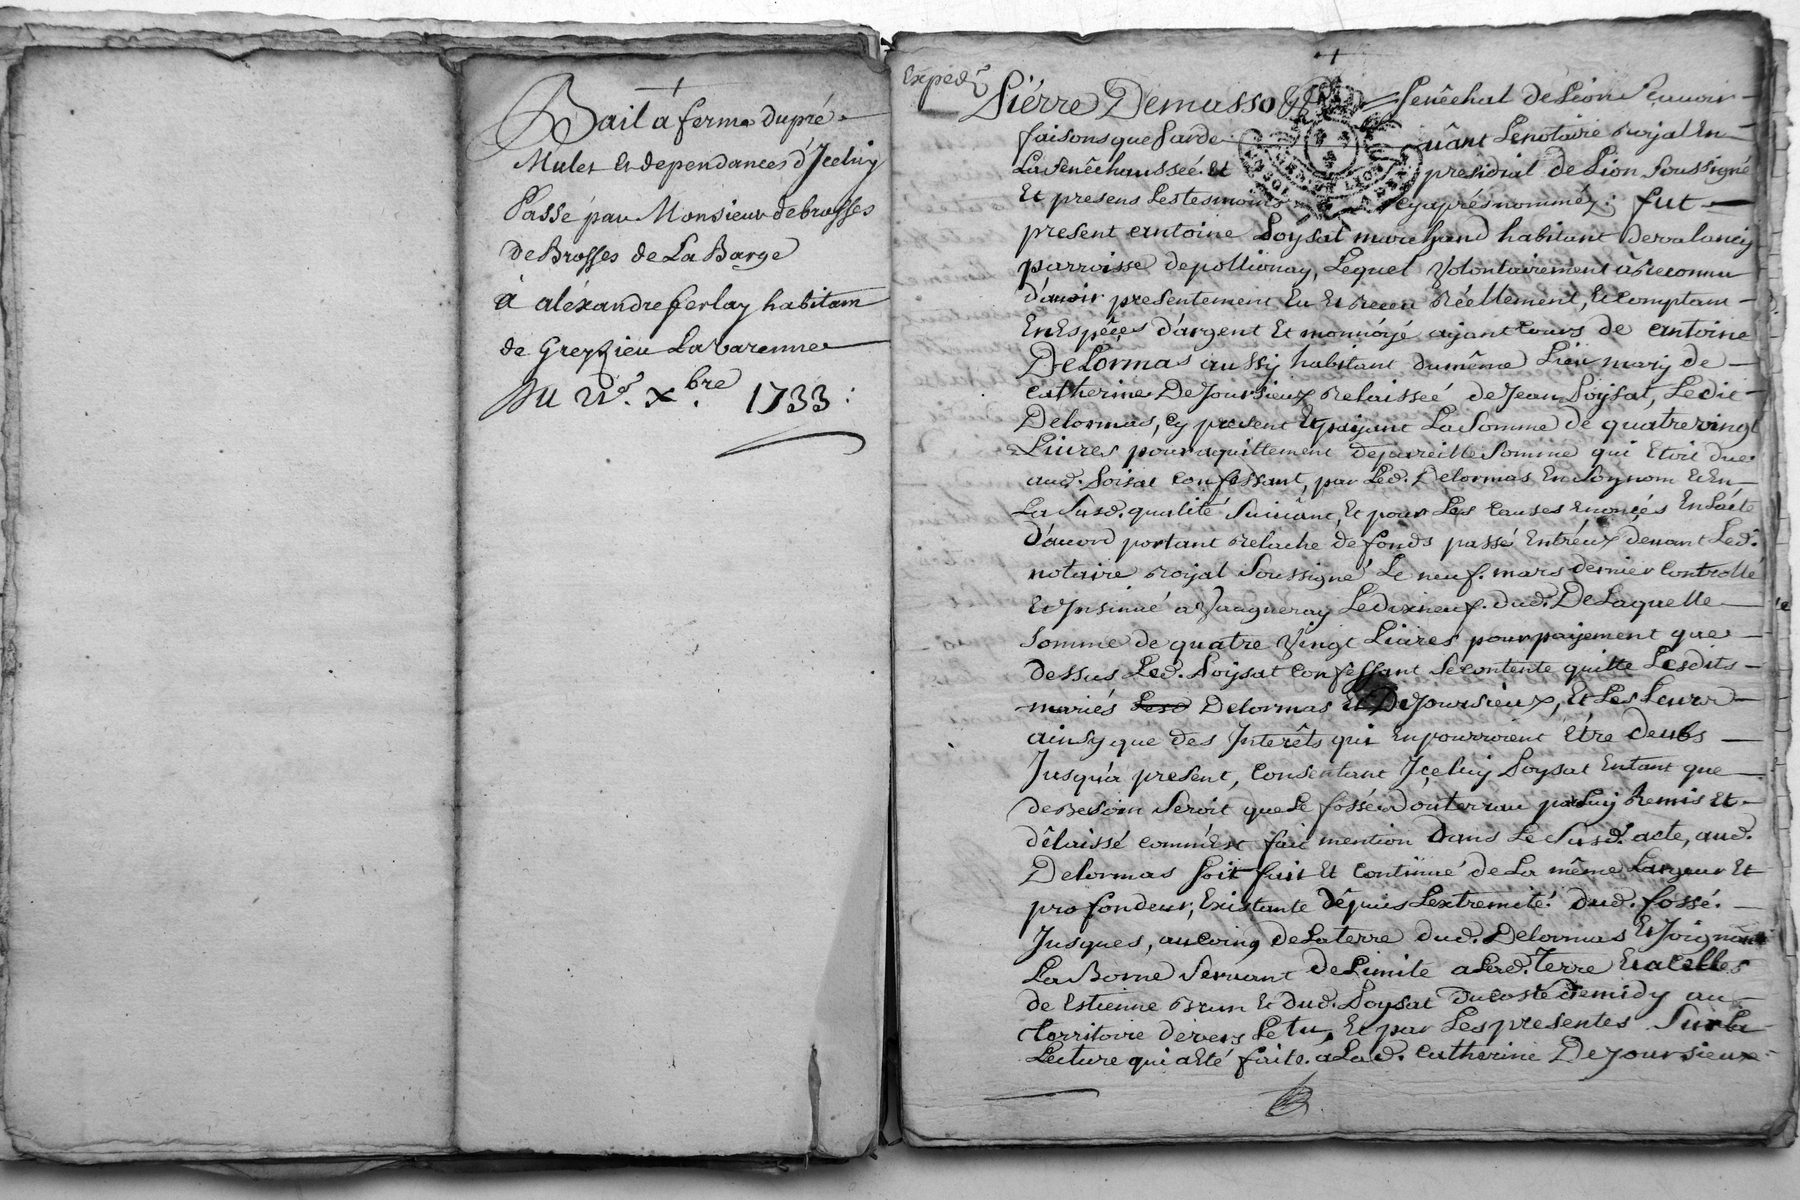 Bail a ferme du pré
Mulet Et dependances d'Jceluy
Passé par Monsieur debrosses
De Brosses de La Barge
à aléxandre ferlay habitant
de Grezieu La varenne
Du 21e. Xbre 1733 :
Expéd.
Piérre Demasso Senêchal de Lion Sçavoir
faisons que Parde uânt Le notaire Royal En
La Senêchaussée Et presidial de Lion Soussigné
Et presens Les tesmoins cy aprés nomméz : fut
present antoine Loysat marchand habitant de valancy
parroisse de pollionay, Lequel Volontairement à Reconnu
d'avoir presentement Eu Et Receu Réellement, Et comptant
En Espêçes d'argent Et monnoyé ayant Cours de antoine
De Lormas aussy habitant du même Lieu mary de
Catherine De Joursieux Relaissée de Jean Loysat, Ledit
Delormas, Cy present Et payant La Somme de quatre vingt
Liures pour aquittement de pareille Somme qui Etoit due
aud. Loisat Confessant, par Led. Delormas En Son nom Et En
La Susd. qualité Suivant, Et pour Les Causes enoncées En L'acte
d'acord portant Relache de fonds passé Entréux devant Led.
notaire Royal Soussigné Le neuf. mars dernier Controllé
Et Jnsinué a Vaugneray Le dixneuf. dud. De Laquelle
Somme de quatre Vingt Liures pour payement que
dessus Led. Loysat Confessant Se contente quitte Lesdits
mariés Delormas Et DeJoursieux, Et Les Leurs
ainsy que des Jnterêts qui En pourroient Etre deubs
Jusqu'a present, Consentant Jçeluy Loysat Entant que
de Besoin Seroit que Le fossé dont par Luy Remis Et
dêlaissé comm'Est fait mention Dans Le Susd. acte, aud.
Delormas Soit fait Et Continué de La même Largeur Et
profondeur, Existante dêpuis L'extremité dud. fossé.
Jusques, au Coing de La terre dud. Delormas Et Joignant
La Borne Servant de Limite a Lad. terre Et a Celles
de Estienne Brun Et dud. Loysat du costé de midy au
territoire de vers Le tu, Et par Les presentes Sur La
Lecture qui a Eté faite à Lad. Catherine De Joursieux